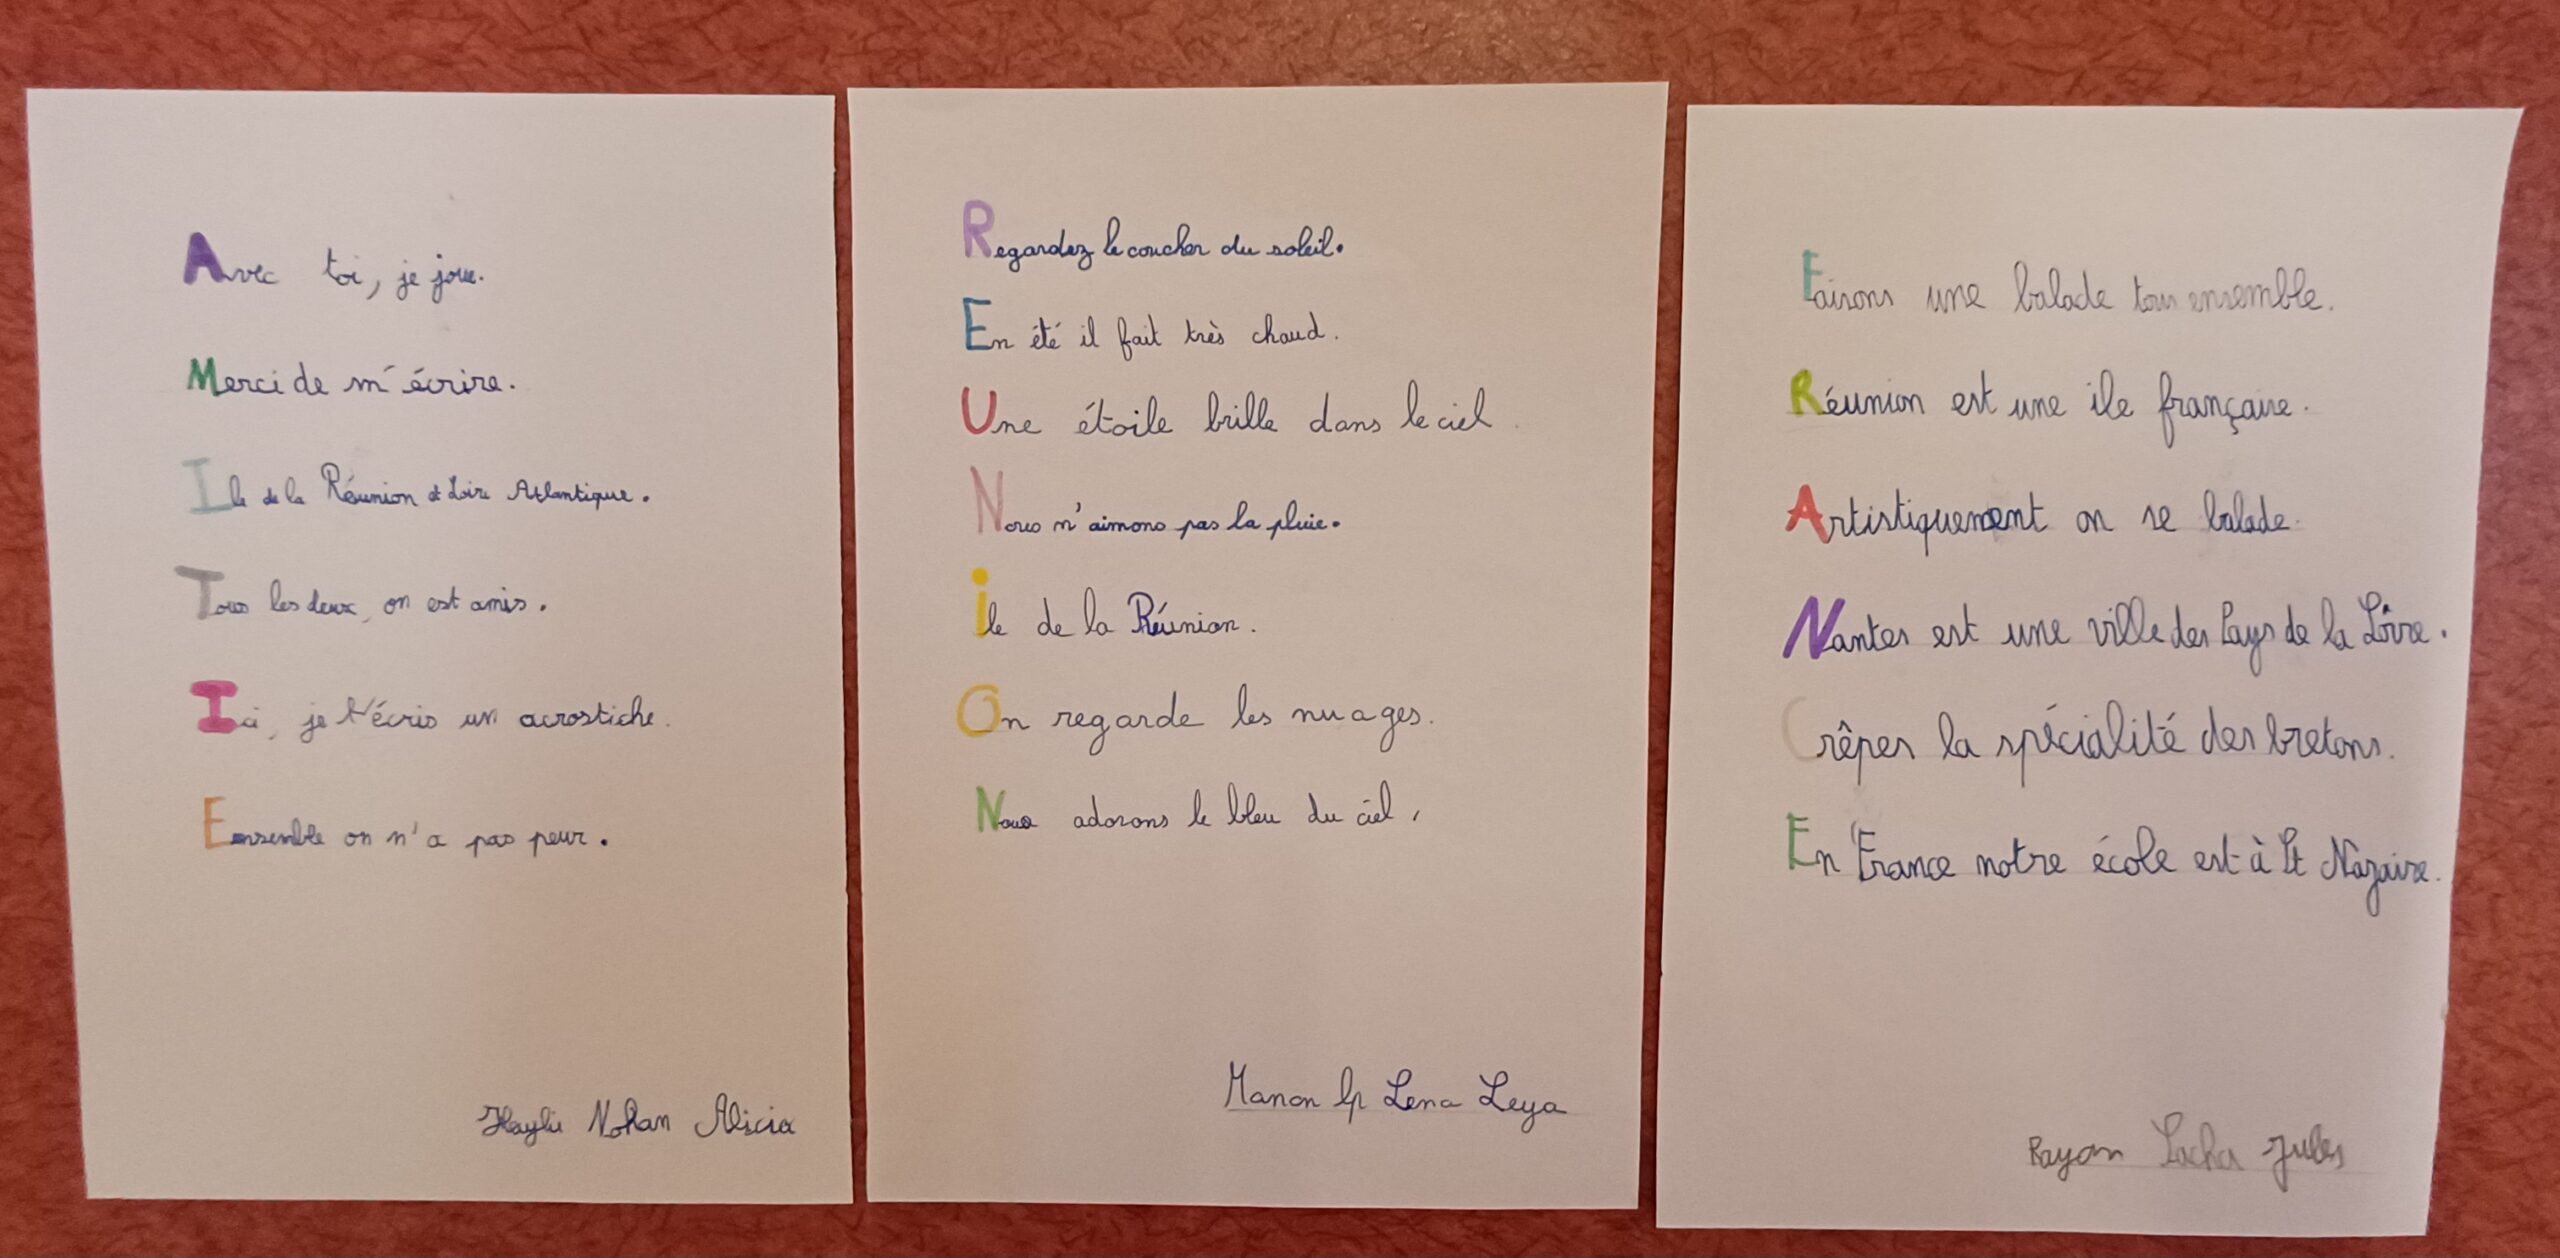 Avec toi, je joue.
Merci de m'écrire.
Ile de la Réunion et Loire Atlantique.
Tous les deux, on est amis.
Ici, je t'écris un acrostiche.
Eensemble on n'a pas peur.
Haylie Nohan Alicia
Regardez le coucher du soleil.
En été il fait très chaud.
Une étoile brille dans le ciel.
Nous n'aimons pas la pluie.
ile de la Réunion.
On regarde les nuages.
Nous adorons le bleu du ciel.
Manon lp Lena Leya
Faisons une balade tous ensemble.
Réunion est une ile française.
Artistiquement on se balade.
Nantes est une ville des Pays de la Loire.
Crêpes la spécialité des bretons.
En France notre école est à St Nazaire.
Rayan Sacha Jules